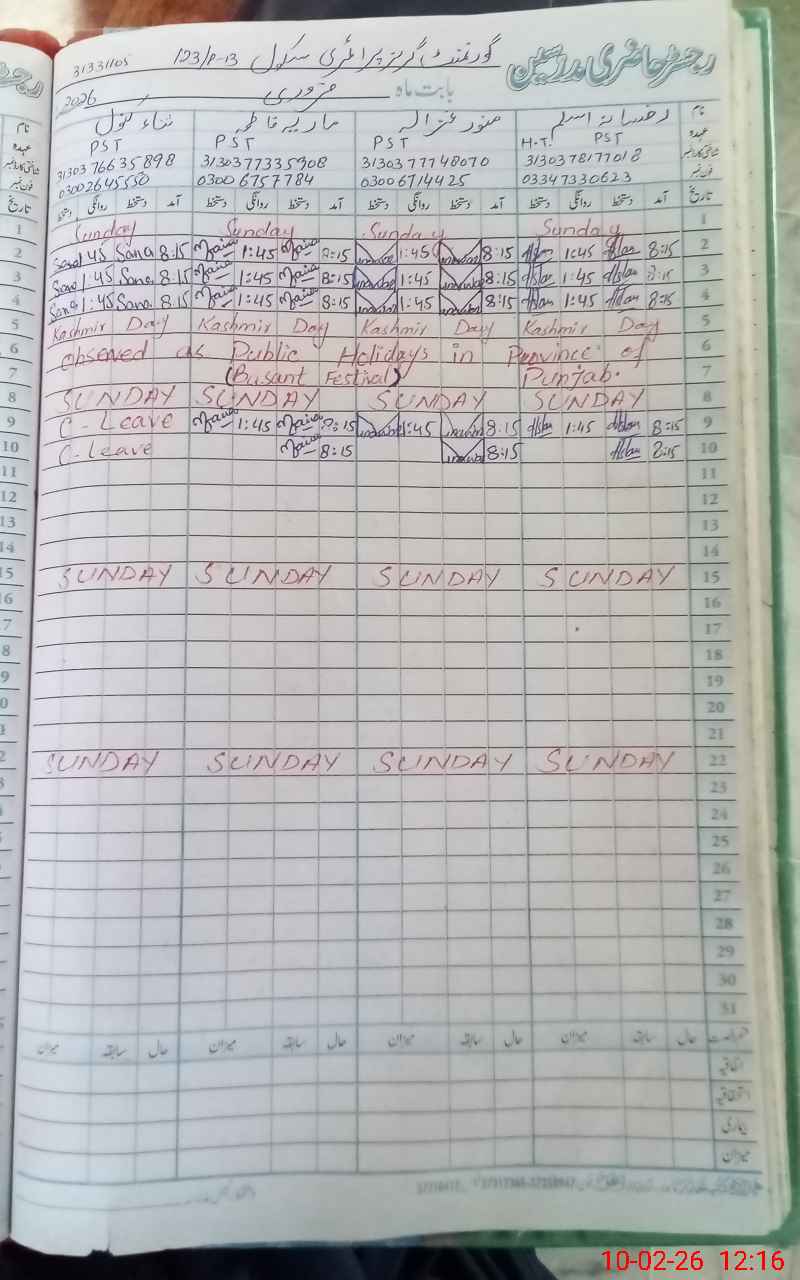 رجسٹر حاضری مدرسین گورنمنٹ گرلز پرائمری سکول 123/P-13 31331105
بابت ماہ فروری 2026
نام رخسانہ اسلم منور غزالہ ماریہ فاطمہ ثناء بتول
عہدہ H.T. PST PST PST PST
شناختی کارڈ نمبر 3130378177018 3130377748070 3130377335908 3130376635898
فون نمبر 03347330623 03006714425 03006757784 03002645550
تاریخ آمد دستخط روانگی دستخط آمد دستخط روانگی دستخط آمد دستخط روانگی دستخط آمد دستخط روانگی دستخط
Sunday Sunday Sunday Sunday 1
1:45 Sana 8:15 1:45 8:15 1:45 8:15 1:45 8:15 2
Sana 1:45 Sana 8:15 1:45 8:15 1:45 8:15 Aslam 1:45 Aslam 8:15 3
Sana 1:45 Sana 8:15 1:45 8:15 1:45 8:15 Aslam 1:45 Aslam 8:15 4
Kashmir Day Kashmir Day Kashmir Day Kashmir Day 5
Observed as Public Holidays in Province of 6
(Basant Festival) Punjab. 7
SUNDAY SUNDAY SUNDAY SUNDAY 8
C-Leave 1:45 8:15 1:45 8:15 Aslam 1:45 Aslam 8:15 9
C-Leave 8:15 8:15 Aslam 8:15 10
11
12
13
14
SUNDAY SUNDAY SUNDAY SUNDAY 15
16
17
18
19
20
21
SUNDAY SUNDAY SUNDAY SUNDAY 22
23
24
25
26
27
28
29
30
31
حال سابقہ میزان حال سابقہ میزان حال سابقہ میزان حال سابقہ میزان
اتفاقیہ
استحقاقیہ
بیماری
میزان
10-02-26 12:16